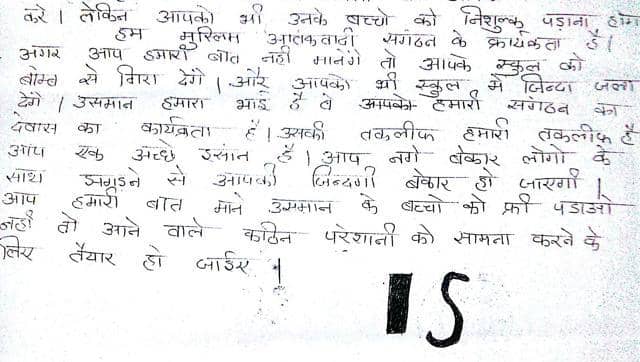 करे। लेकिन आपको भी उनके बच्चो को निशुल्क पडाना होगा
हम मुस्लिम आतकवादी सगंठन के कार्यकता है।
अगर आप हमारी बात नही मानेंगे तो आपके स्कुल को
बोम्ब से गिरा देंगे। और आपको भी स्कुल मे जिन्दा जला
देंगे। उसमान हमारा भाई है वे आपको हमारी सगंठन का
देवास का कार्यक्रता है। उसकी तकलीफ हमारी तकलीफ है
आप एक अच्छे इसान है। आप नगे बेकार लोगो के
साथ झगडने से आपकी जिन्दगी बेकार हो जाएगी।
आप हमारी बात माने उसमान के बच्चो को फ्री पडाओ
नही तो आने वाले कठिन परेशानी को सामना करने के
लिए तैयार हो जाईए।
IS